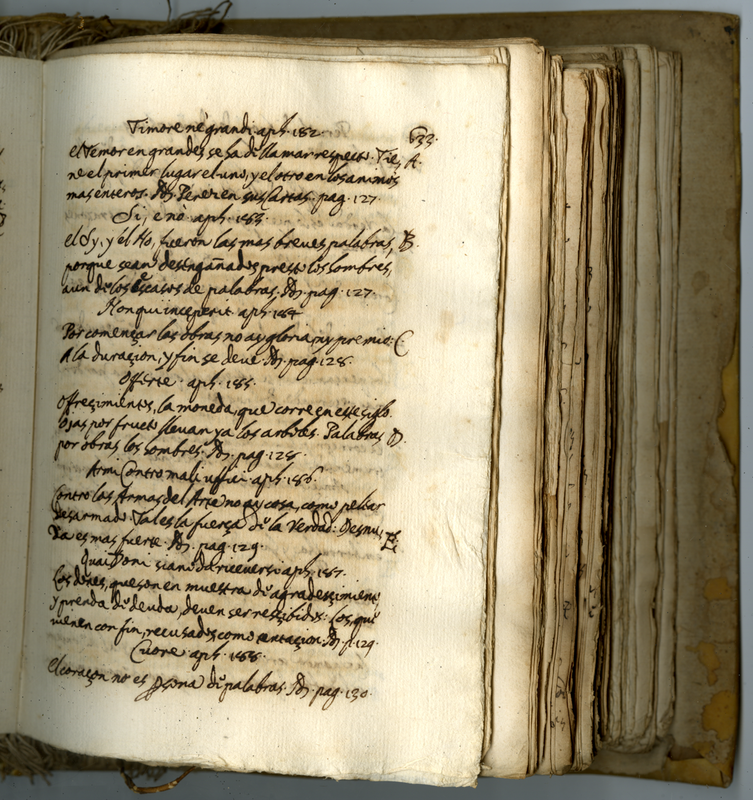 Timore ne' grandi. aph. 182.
633.
el Temor en grandes se ha di llamar respecto. Tie, A.
ne el primer lugar el uno, y el otro en los animos
mas enteros. Perez en sus Cartas. pag. 127.
Si, e nò. aph. 183.
el Sy, y el No, fueron las mas breves palabras, B.
porque sean desengañados presto los hombres,
aun di los escasos de palabras. pag. 127.
Non qui inceperit. aph. 184
Por començar las obras no ay gloria, ny premio. C
A la duraçion, y fin se deve. pag. 128.
Offerte. aph. 185.
Offreçimientos, la moneda, que corre en este siglo.
Ojas por fructo llevan ya los arboles. Palabras D.
por obras los hombres. pag. 128.
Armi Contro mali uffici. aph. 186.
Contro las Armas del Arte no ay cosa, como pelear
desarmado. Tal es la fuerça di la Verdad: Desnu, E.
da es mas fuerte. pag. 129.
Quai Doni siano da riceversi. aph. 187.
Los dones, que son en muestra di agradesçimiento,
y prenda di deuda, deven ser resçibidos: Los que
vienen con fin, recusados como tentaçion. p. 129.
Cuore. aph. 188.
el coraçon no es di palabras. pag. 130.